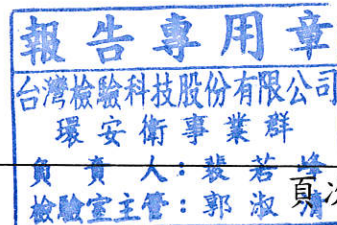 報告專用章
台灣檢驗科技股份有限公司
環安衛事業群
負責人：裴若峰
檢驗室主管：郭淑
頁次